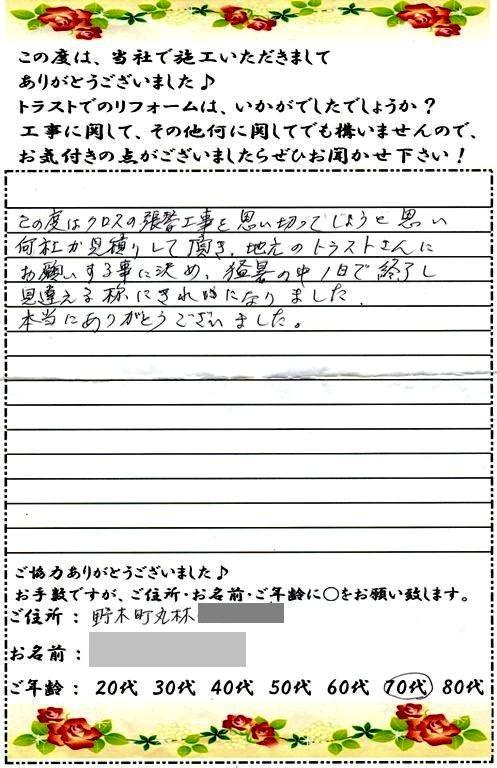 この度は、当社で施工いただきまして
ありがとうございました♪
トラストでのリフォームは、いかがでしたでしょうか?
工事に関して、その他何に関してでも構いませんので、
お気付きの点がございましたらぜひお聞かせ下さい!
この度はクロスの張替工事を思い切ってしようと思い
何社か見積りして頂き、地元のトラストさんに
お願いする事に決め、猛暑の中1日で終了し
見違える様にきれいになりました。
本当にありがとうございました。
ご協力ありがとうございました♪
お手数ですが、ご住所・お名前・ご年齢に○をお願い致します。
ご住所:野木町丸林
お名前:
ご年齢:20代 30代 40代 50代 60代 70代 80代